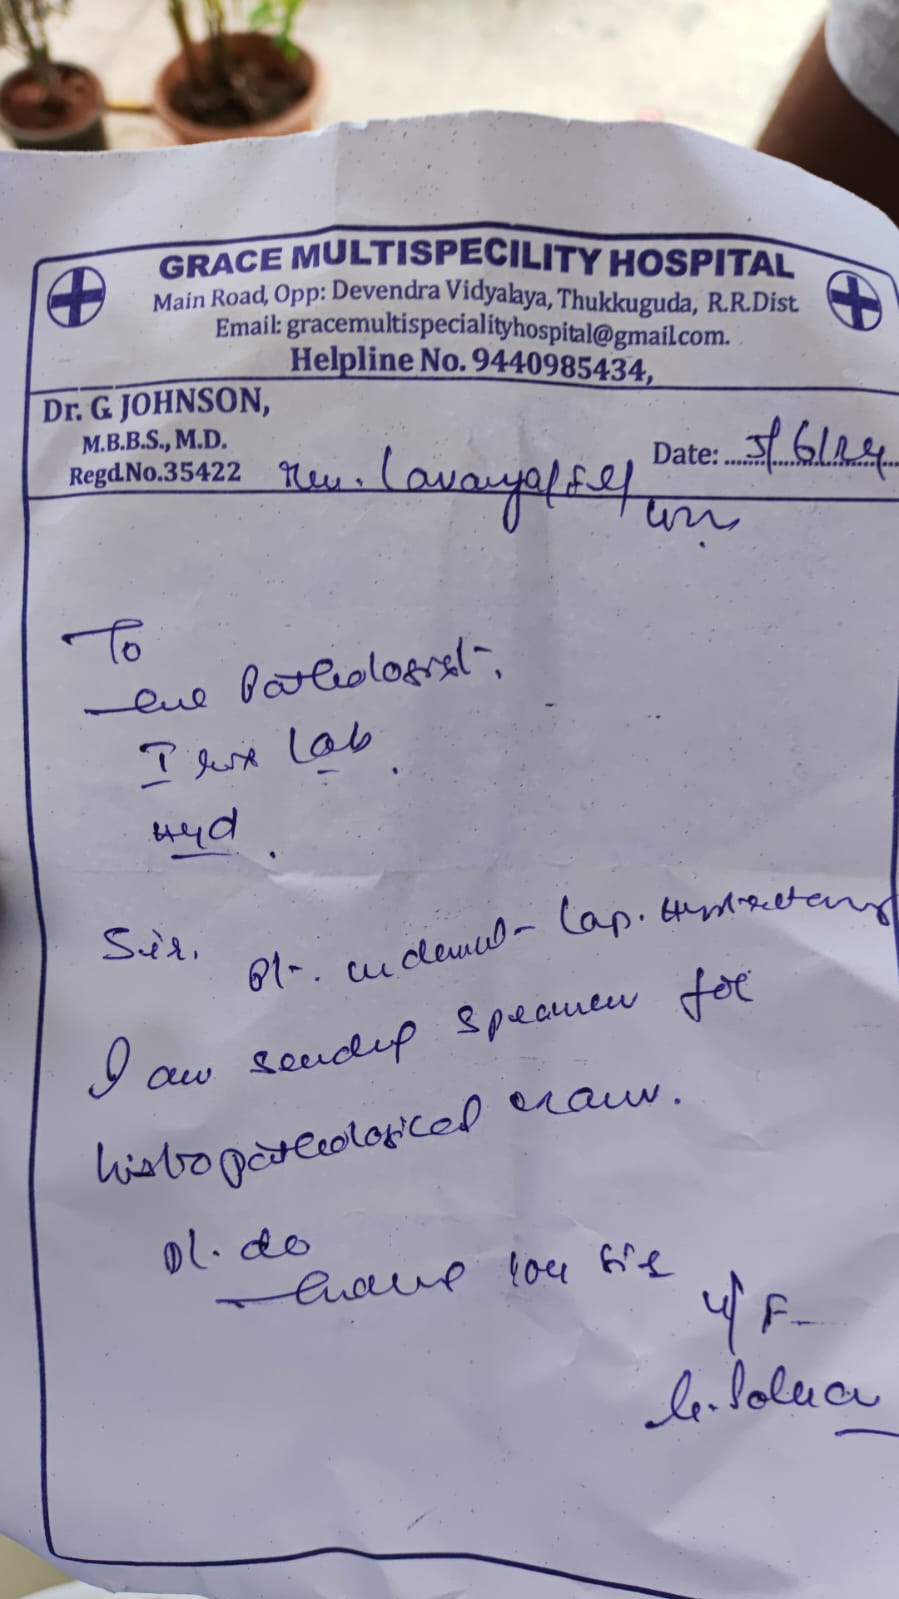 GRACE MULTISPECILITY HOSPITAL
Main Road, Opp: Devendra Vidyalaya, Thukkuguda, R.R.Dist.
Email: gracemultispecialityhospital@gmail.com.
Helpline No. 9440985434,
Dr. G. JOHNSON,
M.B.B.S., M.D.
Regd.No.35422
Date: 5/6/24
Lavanya/F
To
The Pathologist,
Lab.
Hyd.
Sir,
Pt. underwent Lap. Hysterectomy
I am sending specimen for
histopathological exam.
Pl. do
Thank you sir